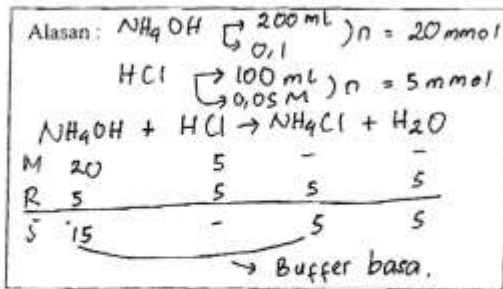 Alasan : NH4OH → 200 ml
→ 0,1 ) n = 20 mmol
HCl → 100 ml
→ 0,05 M ) n = 5 mmol
NH4OH + HCl → NH4Cl + H2O
M 20 5 - -
R 5 5 5 5
S 15 - 5 5
→ Buffer basa.